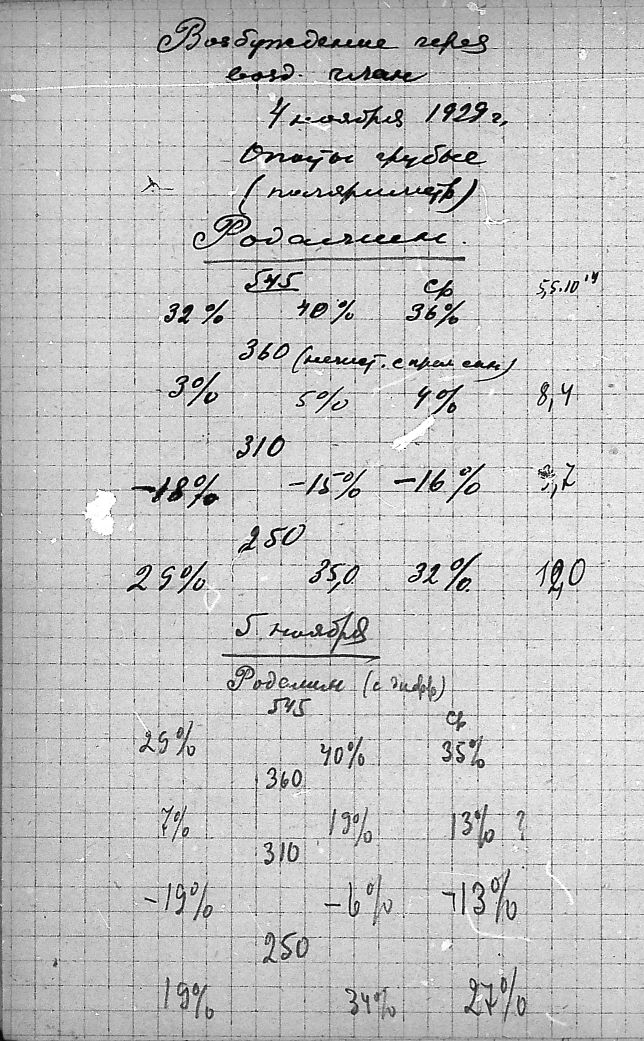 Возбуждение через
возд. клин
4 ноября 1929 г.
Опыты грубые
(поляриметр)
Родамин.
545 ср 5,5·10¹⁴
32% 40% 36%
360 (
3% 5% 4% 8,4
310
-18% -15% -16% ,7
250
29% 35,0 32%
5 ноября
Родамин (с
545 ср
29% 40% 35%
360
7% 19% 13% ?
310
-19% -6% -13%
250
19% 34% 27%